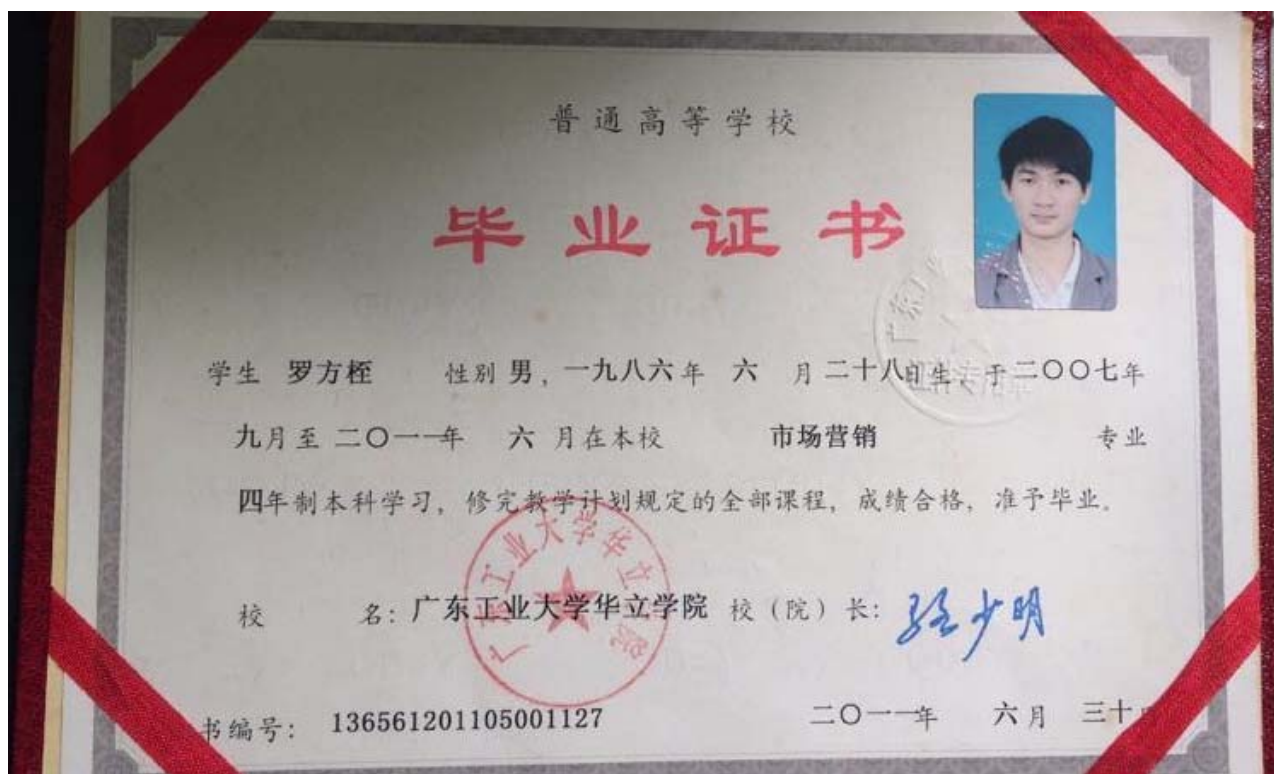 普通高等学校
毕业证书
学生 罗方桎 性别 男，一九八六年 六 月二十八日生，于二〇〇七年
九月至二〇一一年 六 月在本校 市场营销 专业
四年制本科学习，修完教学计划规定的全部课程，成绩合格，准予毕业。
广东工业大学华立学院
校 名：广东工业大学华立学院 校（院）长：
书编号：136561201105001127 二〇一一年 六月 三十